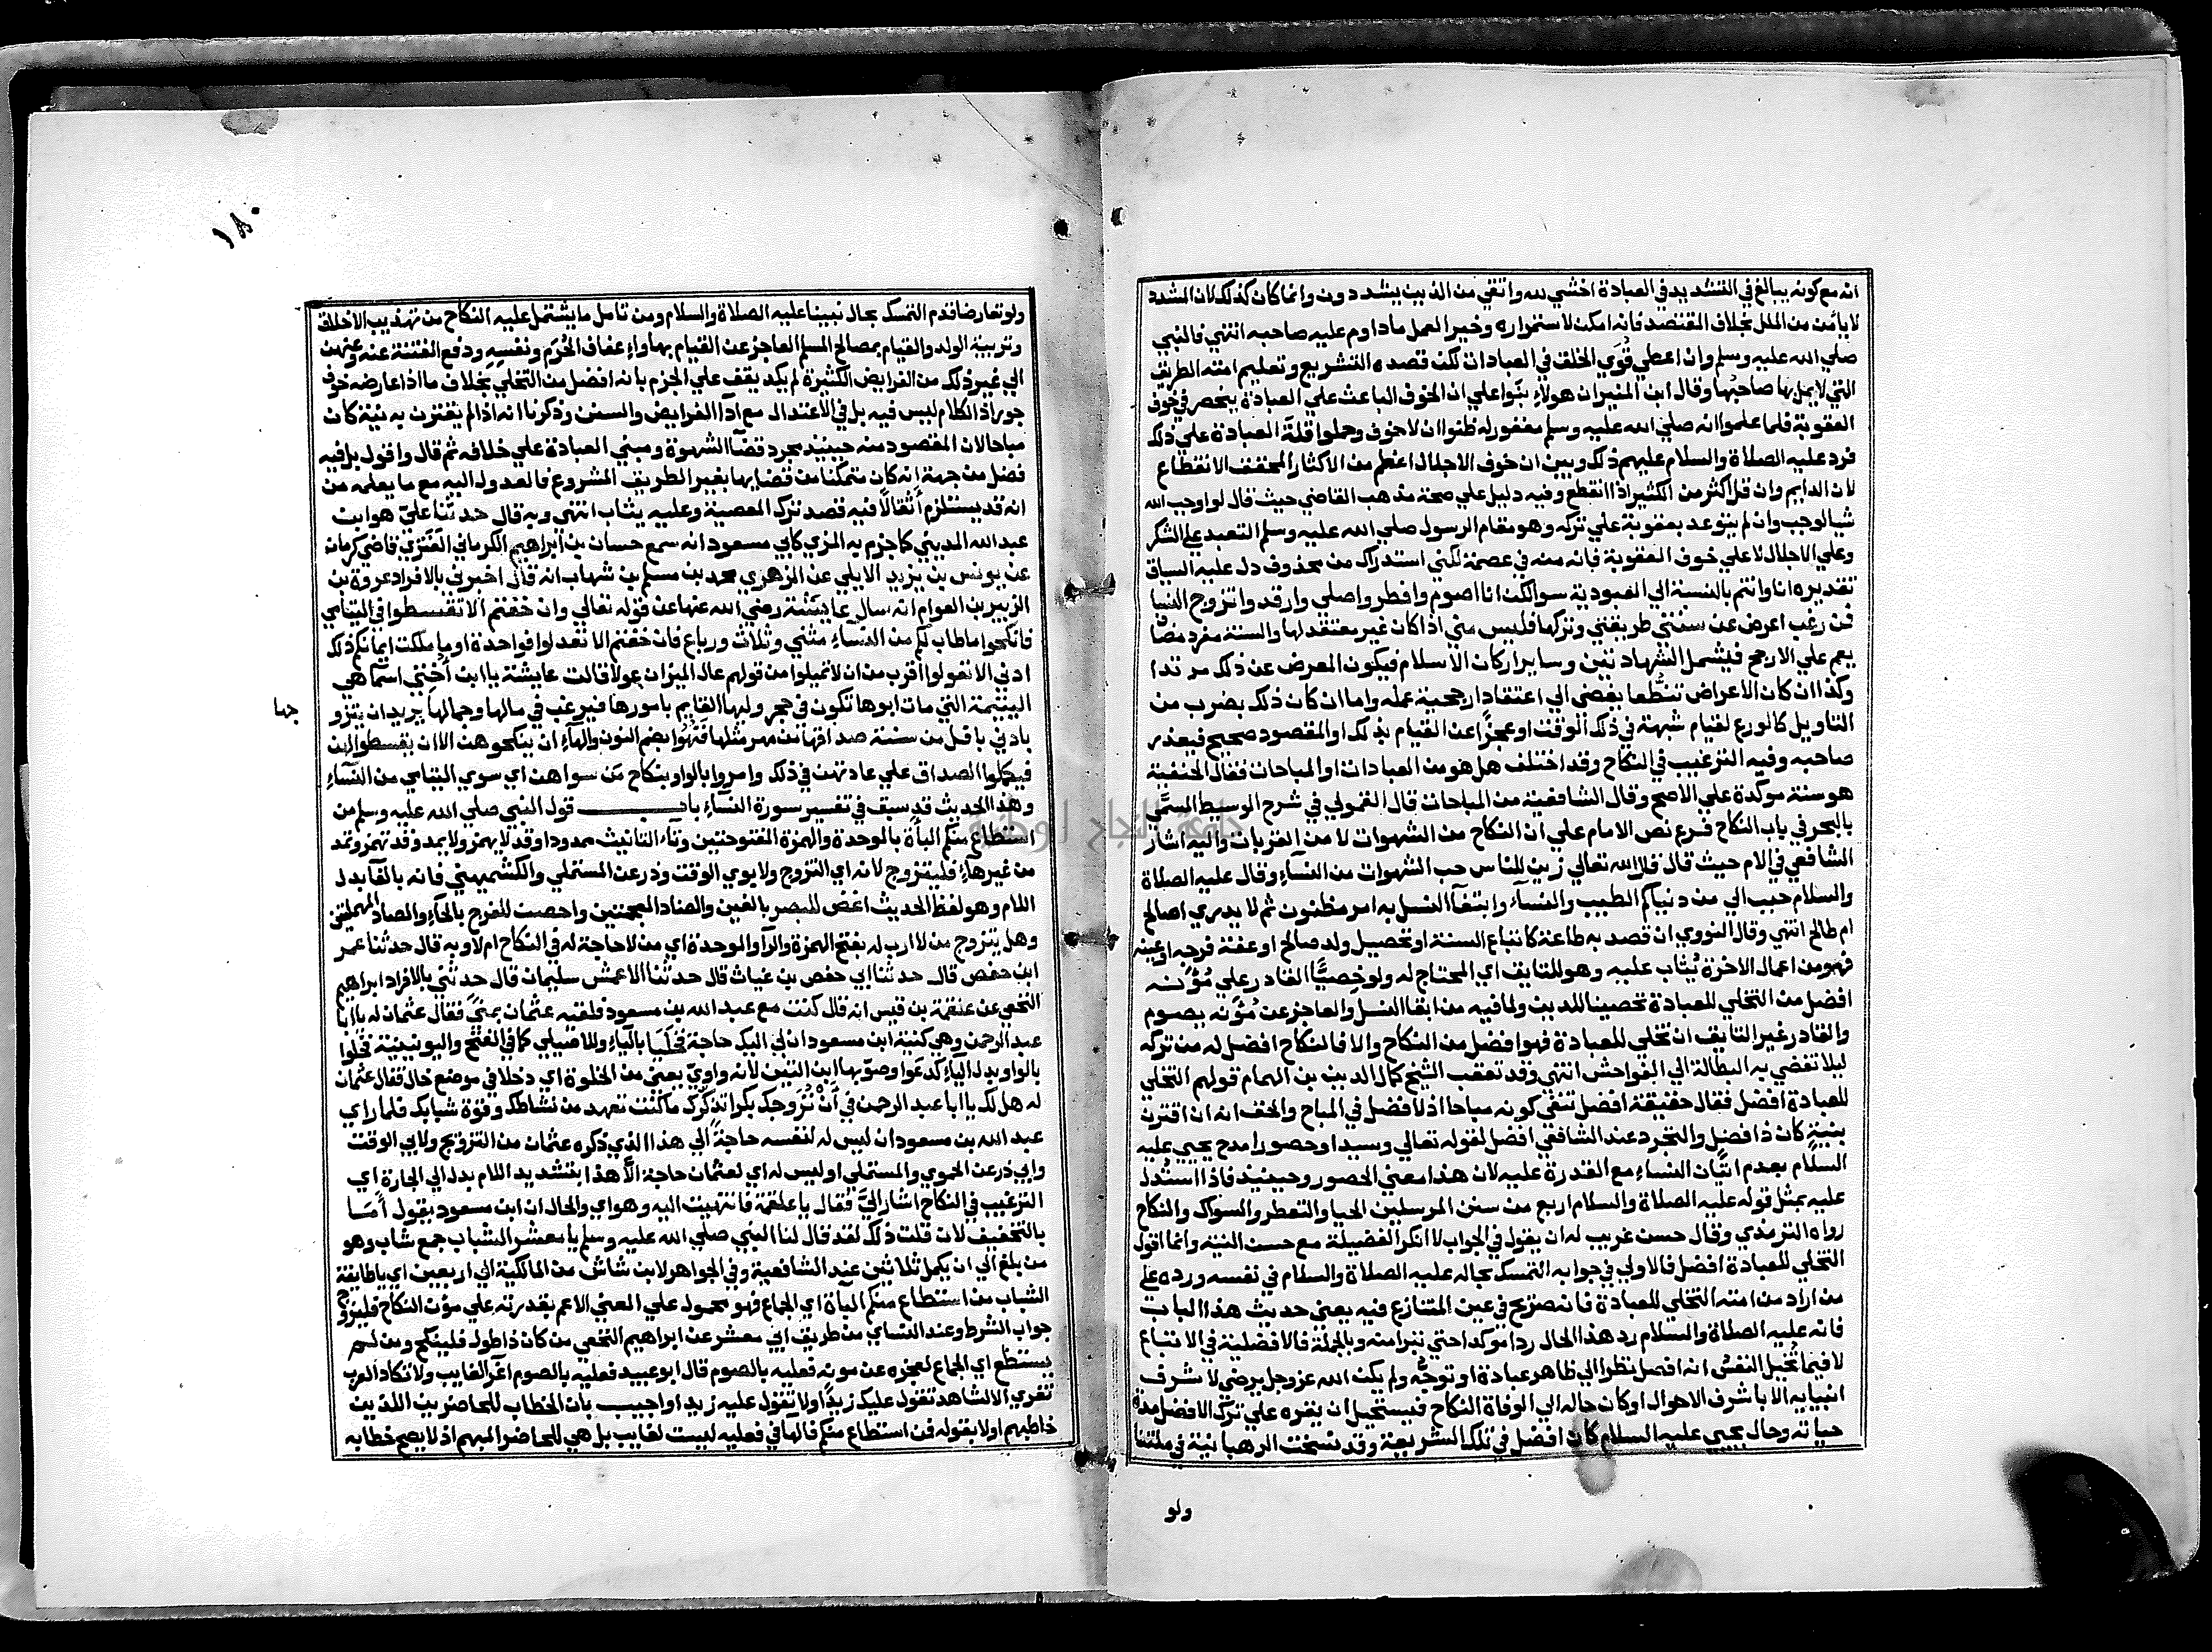 انه مع كونه يبالغ في التشديد في العبادة اخشي لله واتقي من الذين يشددون وانما كان كذلك لان المشدد
لا يأمن من الملل بخلاف المقتصد فانه امكن لاستمراره وخير العمل ما داوم عليه صاحبه انتهي فالنبي
صلي الله عليه وسلم وان اعطي قوي الخلق في العبادات لكن قصده التشريع وتعليم امته الطريق
التي لا يمل بها صاحبها وقال ابن المنير ان هولاء بنوا علي ان الخوف الباعث علي العبادة ينحصر في خوف
العقوبة فلما علموا انه صلي الله عليه وسلم مغفور له ظنوا ان لا خوف وحملوا قلة العبادة علي ذلك
فرد عليه الصلاة والسلام عليهم ذلك وبين ان خوف الاجلال اعظم من الاكثار المحقق الانقطاع
لان الدايم وان قل اكثر من الكثير اذا انقطع وفيه دليل علي صحة مذهب القاضي حيث قال لو اوجب الله
شيا لوجب وان لم يتوعد بعقوبة علي تركه وهو مقام الرسول صلي الله عليه وسلم التعبد علي الشكر
وعلي الاجلال لا علي خوف العقوبة فانه منه في عصمة لكني استدراك من محذوف دل عليه السياق
تقديره انا وانتم بالنسبة الي العبودية سوا لكن انا اصوم وافطر واصلي وارقد واتزوج النسا
فمن رغب اعرض عن سنتي طريقتي وتركها فليس مني اذا كان غير معتقد لها والسنة مفرد مضاف
يعم علي الارجح فيشمل الشهادتين وساير اركان الاسلام فيكون المعرض عن ذلك مرتدا
وكذا ان كان الاعراض تنطعا يفضي الي اعتقاد ارجحية عمله واما ان كان ذلك بضرب من
التاويل كالورع لقيام شبهة في ذلك الوقت او عجزا عن القيام بذلك او المقصود صحيح فيعذر
صاحبه وفيه الترغيب في النكاح وقد اختلف هل هو من العبادات او المباحات فقال الحنفية
هو سنة موكدة علي الاصح وقال الشافعية من المباحات قال القمولي في شرح الوسيط المسمي
بالبحر في باب النكاح فرع نص الامام علي ان النكاح من الشهوات لا من القربات واليه اشار
الشافعي في الام حيث قال قال الله تعالي زين للناس حب الشهوات من النسآء وقال عليه الصلاة
والسلام حبب الي من دنياكم الطيب والنسآء وابتغآ النسل به امر مظنون ثم لا يدري اصالح
ام طالح انتهي وقال النووي ان قصد به طاعة كاتباع السنة او تحصيل ولد صالح او عفة فرجه او عينه
فهو من اعمال الاخرة يثاب عليه وهو للتايق اي المحتاج له ولو خصيا القادر علي مؤنه
افضل من التخلي للعبادة تحصينا للدين ولما فيه من ابقا النسل والعاجز عن مؤنه يصوم
والقادر غير التايق ان تخلي للعبادة فهو افضل من النكاح والا فالنكاح افضل له من تركه
ليلا تفضي به البطالة الي الفواحش انتهي وقد تعقب الشيخ كمال الدين بن الهمام قولهم التخلي
للعبادة افضل فقال حقيقة افضل تنفي كونه مباحا اذ لا فضل في المباح والحق انه ان اقترن
بنية كان ذا فضل والتجرد عند الشافعي افضل لقوله تعالي وسيدا وحصورا مدح يحيي عليه
السلام بعدم اتيان النساء مع القدرة عليه لان هذا معني الحصور وحينيذ فاذا استدل
عليه بمثل قوله عليه الصلاة والسلام اربع من سنن المرسلين الحيا والتعطر والسواك والنكاح
رواه الترمذي وقال حسن غريب له ان يقول في الجواب لا انكر الفضيلة مع حسن النية وانما اقول
التخلي للعبادة افضل فالاولي في جوابه التمسك بحاله عليه الصلاة والسلام في نفسه ورده علي
من اراد من امته التخلي للعبادة فانه صريح في عين المتنازع فيه يعني حديث هذا الباب
فانه عليه الصلاة والسلام رد هذا الحال ردا موكدا حتي تبرا منه وبالجملة فالافضلية في الاتباع
لا فيما تخيل النفس انه افضل نظرا الي ظاهر عبادة او توجه ولم يكن الله عز وجل يرضي لاشرف
انبيايه الا باشرف الاحوال وكان حاله الي الوفاة النكاح فيستحيل ان يقره علي ترك الافضل مدة
حياته وحال يحيي عليه السلام كان افضل في تلك الشريعة وقد نسخت الرهبانية في ملتنا
ولو
١٨٠
ولو تعارضا قدم التمسك بحال نبينا عليه الصلاة والسلام ومن تامل ما يشتمل عليه النكاح من تهذيب الاخلاق
وتربية الولد والقيام بمصالح المسلم العاجز عن القيام بها واعفاف الحرم ونفسه ودفع الفتنة عنه وعنهن
الي غير ذلك من الفرايض الكثيرة لم يكد يقف علي الجزم بانه افضل من التخلي بخلاف ما اذا عارضه خوف
جور اذ الكلام ليس فيه بل في الاعتدال مع ادآ الفرايض والسنن وذكرنا انه اذا لم يقترن به نية كان
مباحا لان المقصود منه حينيذ مجرد قضآ الشهوة ومبني العبادة علي خلافه ثم قال واقول بل فيه
فضل من جهة انه كان متمكنا من قضايها بغير الطريق المشروع فالعدول اليه مع ما يعلمه من
انه قد يستلزم أثقالا فيه قصد ترك المعصية وعليه يثاب انتهي وبه قال حدثنا علي هو ابن
عبد الله المديني كما جزم به المزي كابي مسعود انه سمع حسان بن ابراهيم الكرماني العنزي قاضي كرمان
عن يونس بن يزيد الايلي عن الزهري محمد بن مسلم بن شهاب انه قال اخبرني بالافراد عروة بن
الزبير بن العوام انه سال عايشة رضي الله عنها عن قوله تعالي وان خفتم الا تقسطوا في اليتامي
فانكحوا ما طاب لكم من النساء مثني وثلاث ورباع فان خفتم الا تعدلوا فواحدة او ما ملكت ايمانكم ذلك
ادني الا تعولوا اقرب من ان لا تميلوا من قولهم عال الميزان عولا قالت عايشة يا ابن أختي اسما هي
اليتيمة التي مات ابوها تكون في حجر وليها القايم بامورها فيرغب في مالها وجمالها يريد ان يتزو
جها
بادني باقل من سنة صداقها من مهر مثلها فنهوا بضم النون والهآء ان ينكحوهن الا ان يقسطوا لهن
فيكملوا الصداق علي عادتهن في ذلك وامروا بالواو بنكاح من سواهن اي سوي اليتامي من النسآء
وهذا الحديث قد سبق في تفسير سورة النسآء باب قول النبي صلي الله عليه وسلم من
استطاع منكم البأة بالموحدة والهمزة المفتوحتين وتآء التانيث ممدودا وقد لا يهمز ولا يمد وقد تهمز وتمد
من غير هآء فليتزوج لانه اي التزوج ولابوي الوقت وذر عن المستملي والكشميهني فانه بالفآ بدل
اللام وهو لفظ الحديث اغض للبصر بالغين والضاد المعجمتين واحصن للفرج بالحآء والصاد المهملتين
وهل يتزوج من لا ارب له بفتح الهمزة والرآ والموحدة اي من لا حاجة له في النكاح ام لا وبه قال حدثنا عمر
ابن حفص قال حدثنا ابي حفص بن غياث قال حدثنا الاعمش سليمان قال حدثني بالافراد ابراهيم
النخعي عن علقمة بن قيس انه قال كنت مع عبد الله بن مسعود فلقيه عثمان بمني فقال عثمان له يا ابا
عبد الرحمن وهي كنية ابن مسعود ان لي اليك حاجة فخليا باليآء وللاصيلي كما في الفتح واليونينية فخلوا
بالواو بدل الياء كدعوا وصوبها ابن التين لانه واوي يعني من الخلوة اي دخلا في موضع خال فقال عثمان
له هل لك يا ابا عبد الرحمن في أن نزوجك بكرا تذكرك ما كنت تعهد من نشاطك وقوة شبابك فلما راي
عبد الله بن مسعود ان ليس له لنفسه حاجة الي هذا الذي ذكره عثمان من التزويج ولابي الوقت
وابي ذر عن الحموي والمستملي اوليس له اي لعثمان حاجة الا هذا بتشديد اللام بدل الي الجارة اي
الترغيب في النكاح اشار الي فقال يا علقمة فانتهيت اليه وهو اي والحال ان ابن مسعود يقول أما
بالتخفيف لان قلت ذلك لقد قال لنا النبي صلي الله عليه وسلم يا معشر الشباب جمع شاب وهو
من بلغ الي ان يكمل ثلاثين عند الشافعية وفي الجواهر لابن شاش من المالكية الي اربعين اي يا طايفة
الشباب من استطاع منكم البأة اي الجماع فهو محمول علي المعني الاعم بقدرته علي مؤن النكاح فليتزوج
جواب الشرط وعند النساي من طريق ابي معشر عن ابراهيم النخعي من كان ذا طول فلينكح ومن لم
يستطع اي الجماع لعجزه عن مونه فعليه بالصوم قال ابو عبيد فعليه بالصوم اغرآ الغايب ولا تكاد العرب
تغري الا الشاهد تقول عليك زيدا ولا تقول عليه زيدا واجيب بان الخطاب للحاضرين الذين
خاطبهم اولا بقوله من استطاع منكم فالهآ في فعليه ليست لغايب بل هي للحاضر المبهم اذ لا يصح خطابه